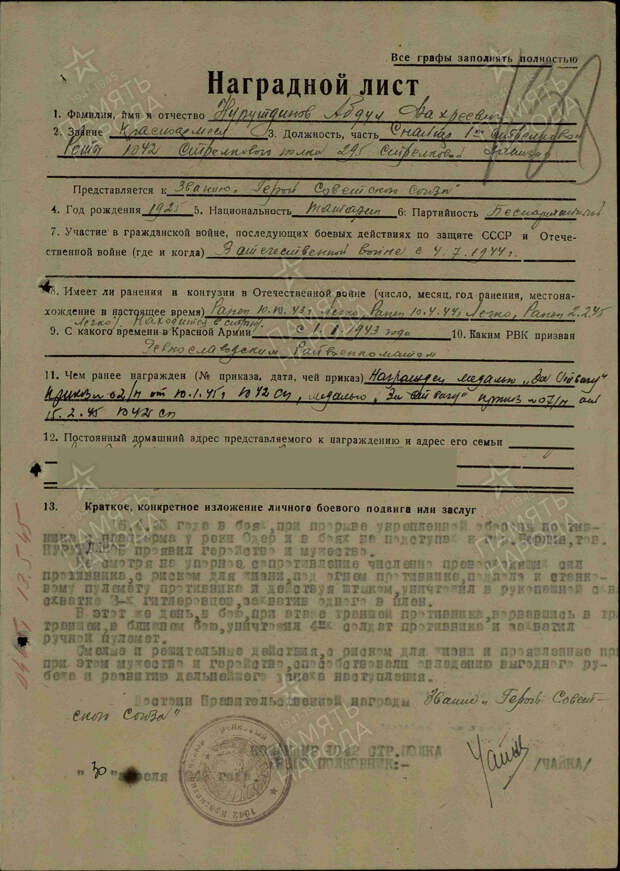 Все графы заполнять полностью
Наградной лист
1. Фамилия, имя и отчество Нурутдинов Абдул
2. Звание Красноармеец 3. Должность, часть Снайпер 1ой стрелковой
Роты 1042 стрелкового полка 295 стрелковой дивизии
Представляется к Званию „Герой Советского Союза"
4. Год рождения 1925 5. Национальность татарин 6. Партийность Беспартийный
7. Участие в гражданской войне, последующих боевых действиях по защите СССР и Отече-
ственной войне (где и когда) В отечественной войне с 4.7.1944г.
8. Имеет ли ранения и контузии в Отечественной войне (число, месяц, год ранения, местона-
хождение в настоящее время) Ранен 10.10.43г. Легко, Ранен 10.4.44г. Легко, Ранен 2.2.45
Легко, Находится в строю.
9. С какого времени в Красной Армии с 1.1.1943 года 10. Каким РВК призван
Райвоенкоматом
11. Чем ранее награжден (№ приказа, дата, чей приказ) Награжден медалью „За Отвагу"
приказ 02/н от 10.1.45г 1042 сп, медалью „За отвагу" приказ №07/н от
15.2.45 1042 сп
12. Постоянный домашний адрес представляемого к награждению и адрес его семьи
13. Краткое, конкретное изложение личного боевого подвига или заслуг
года в боях, при прорыве укрепленной обороны против-
ника с плацдарма у реки Одер и в боях на подступах к гор. Берлин, тов.
НУРУТДИНОВ проявил геройство и мужество.
смотря на упорное сопротивление численно превосходящих сил
противника, с риском для жизни, под огнем противника, подполз к станко-
вому пулемету противника и действуя штыком, уничтожил в рукопашной
схватке 3-х гитлеровцев, захватив одного в плен.
В этот же день, в бою, при атаке траншей противника, ворвавшись в
траншеи, в ближнем бою, уничтожил 4-х солдат противника и захватил
ручной пулемет.
Смелые и решительные действия, с риском для жизни и проявленные при
при этом мужество и геройство, способствовали овладению выгодного ру-
бежа и развитию дальнейшего успеха наступления.
Достоин Правительственной награды Звание „Герой Совет-
ского Союза"
КОМАНДИР 1042 СТР.ПОЛКА
ПОЛКОВНИК:- Чайка /ЧАЙКА/
"30" апреля года.
ПАМЯТЬ НАРОДА